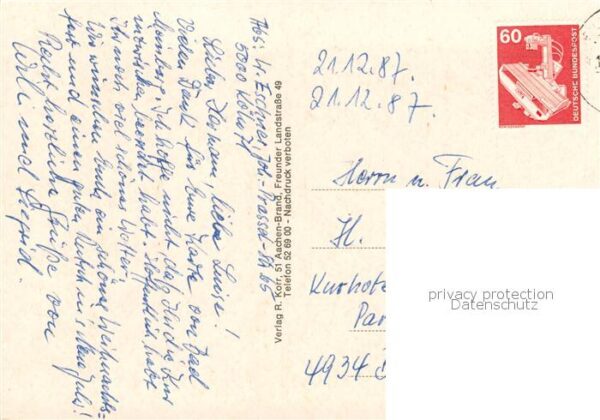 Abs: W. Eschner, Joh.-Prassel-Str. 85
5000 Köln 71
Lieber Hermann, liebe Luise!
Vielen Dank für Eure Karte von Bad
Meinberg. Ich hoffe nicht, daß Ihr die Kur
inzwischen beendet habt. Hoffentlich habt
Ihr noch viel schönes Wetter.
Wir wünschen Euch ein schönes Weihnachts-
fest und einen guten Rutsch ins Neue Jahr!
Recht herzliche Grüße von
Willi und
Verlag R. Korr, 51 Aachen-Brand, Freunder Landstraße 49
Telefon 52 69 00 - Nachdruck verboten
60
DEUTSCHE BUNDESPOST
21.12.87.
21.12.87.
Herrn u. Frau
H.
Kurhote
Par
4934
privacy protection
Datenschutz